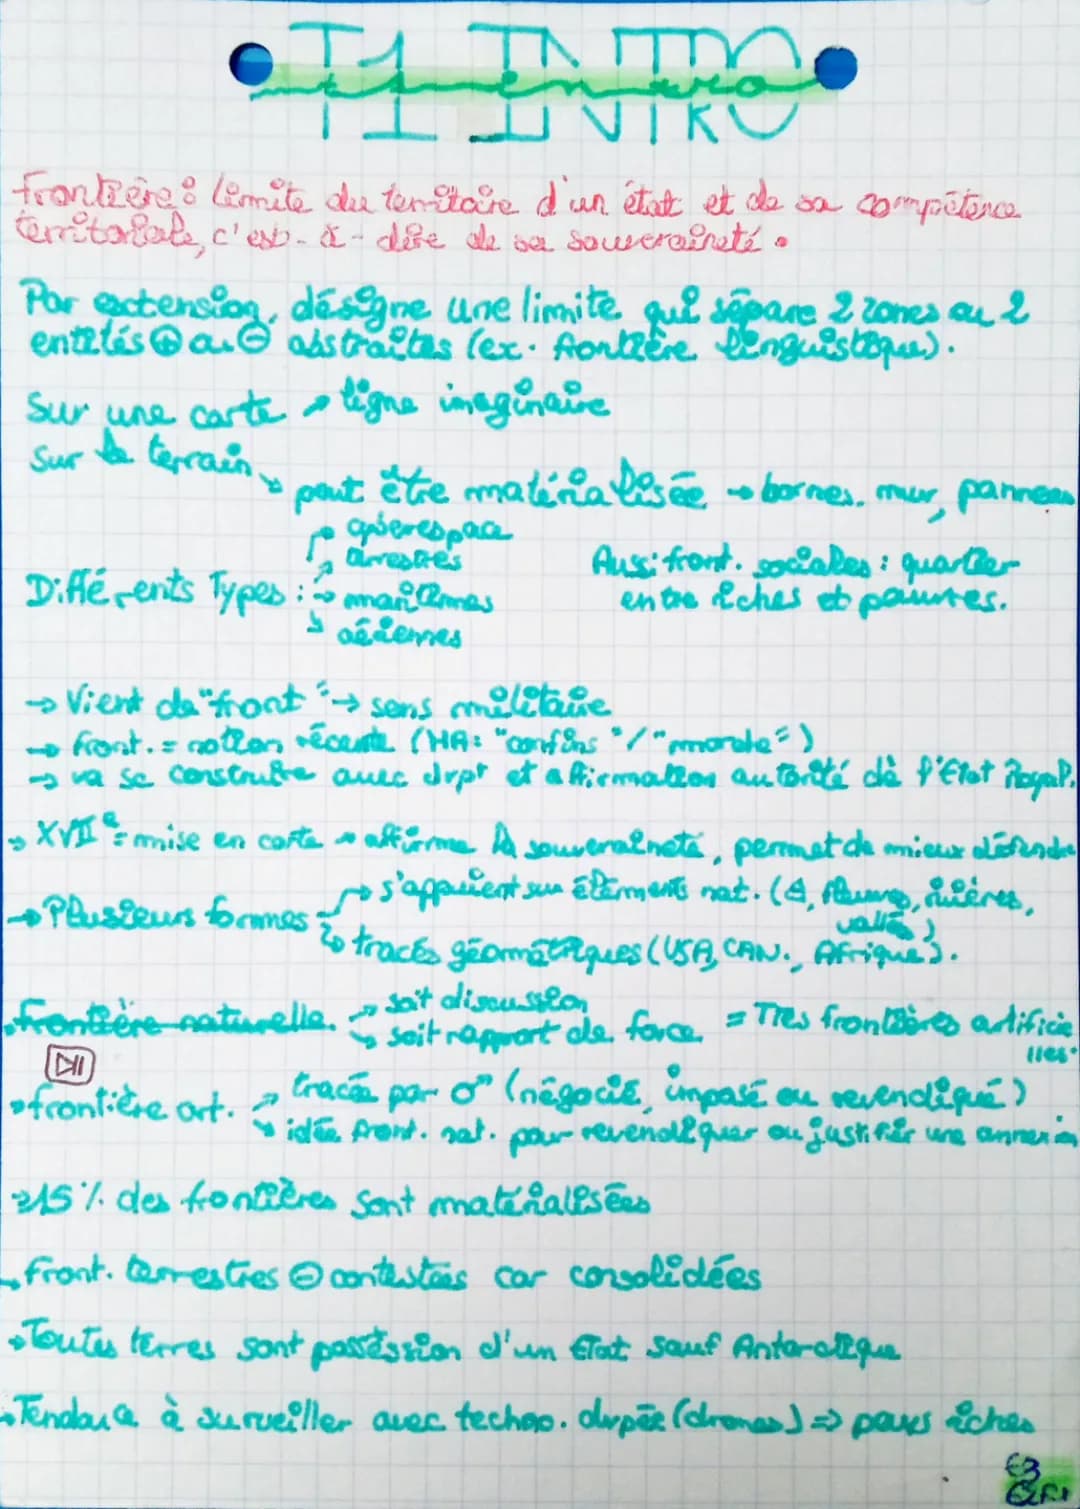 T1 INTRO
t1 intro
Frontière : limite du territoire d'un état et de sa compétence
territoriale, c'est-à-dire de sa souveraineté.
Par extension, désigne une limite qui sépare 2 zones ou 2
entités ⊕ ou ⊖ abstraites (ex. frontière linguistique).
Sur une carte → ligne imaginaire
Sur le terrain
↘ peut être matérialisée → bornes, mur, panneau
cyberespace
terrestres
Différents Types : → maritimes
aériennes
Aussi front. sociales : quartier
entre riches et pauvres.
→ Vient de "front" → sens militaire
→ front. = notion récente (HA: "confins"/"marche")
→ va se construire avec dvpt et affirmation autorité de l'Etat Royal.
→ XVIIe = mise en carte → affirme la souveraineté, permet de mieux défendre
→ Plusieurs formes → s'appuient sur éléments nat. (Δ, fleuves, rivières,
vallées)
↳ tracés géométriques (USA, CAN., Afrique).
frontière naturelle. → soit discussion
↘ soit rapport de force = Tres frontières artificie
lles.
→ frontière art. → tracée par σ" (négocié, imposé ou revendiqué)
↘ idée front. nat. pour revendiquer ou justifier une annexion
→ 15 % des frontières sont matérialisées
→ Front. terrestres ⊖ contestées car consolidées
→ Toutes terres sont possession d'un Etat sauf Antarctique
→ Tendance à surveiller avec techno. dvpée (drones) ⇒ pays riches